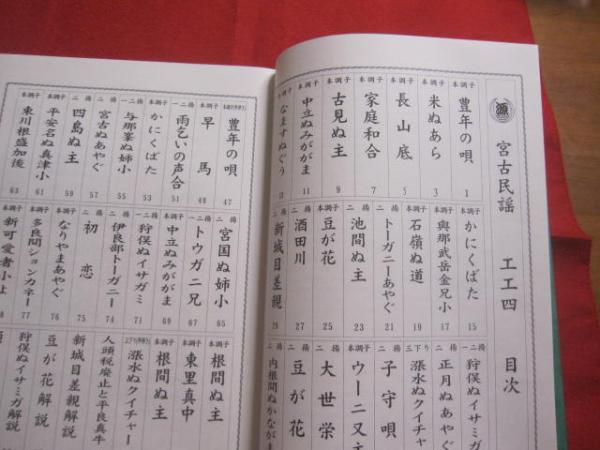 源
宮古民謡 工工四 目次
本調子 豊年の唄 1
本調子 米ぬあら 3
本調子 長山底 5
本調子 家庭和合 7
本調子 古見ぬ主 9
本調子 中立ぬみががま 11
なますぬぐう
本調子 かにくばた 15
本調子 與那武岳金兄小 17
本調子 石嶺ぬ道 19
二揚 トーガニーあやぐ 21
二揚 池間ぬ主 23
本調子 豆が花 25
二揚 酒田川 27
二揚 新城目差親 29
一二揚 狩俣ぬイサミガ
二揚 正月ぬあやぐ
三下り 漲水ぬクイチャー
二揚 子守唄
本調子 ウーニ又主
二揚 大世栄
二揚 豆が花
二揚 内根間ぬかながま
豊年の唄 47
本調子 早馬 49
一二揚 雨乞いの声合 51
本調子 かにくばた 53
一二揚 与那峯ぬ姉小 55
二揚 宮古ぬあやぐ 57
二揚 四島ぬ主 59
本調子 平安名ぬ真津小 61
本調子 東川根盛加後 63
二揚 宮国ぬ姉小 65
一二揚 トウガニ兄 67
本調子 中立ぬみががま 69
一二揚 狩俣ぬイサガミ 71
二揚 伊良部トーガニー 74
二揚 初恋 75
本調子 なりやまあやぐ 76
本調子 多良間ションカネー 77
新可愛者小よ 78
本調子 根間ぬ主
本調子 東里真中
本調子 根間ぬ主
漲水ぬクイチャー
人頭税廃止と平良真牛
新城目差親解説
豆が花解説
狩俣ぬイサミガ解説